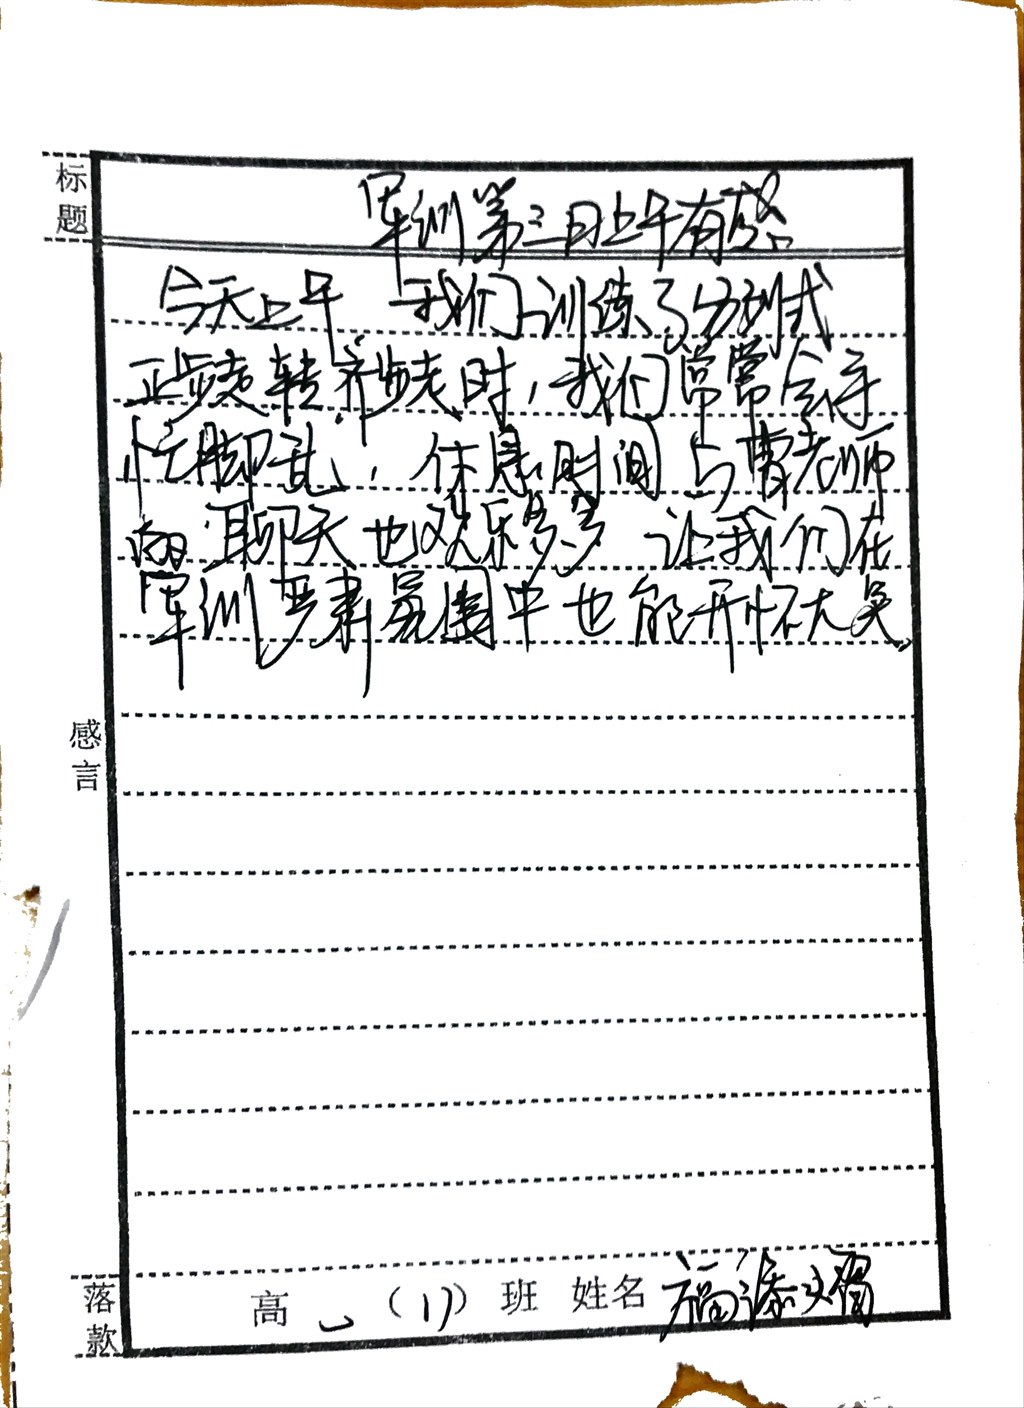 标题
军训第三日上午有感
今天上午 我们训练了分列式
正步走转齐步走时，我们常常会手
忙脚乱，休息时间与曹老师
的聊天也欢乐多多 让我们在
军训严肃氛围中也能开怀大笑。
感言
落款
高一（1）班 姓名